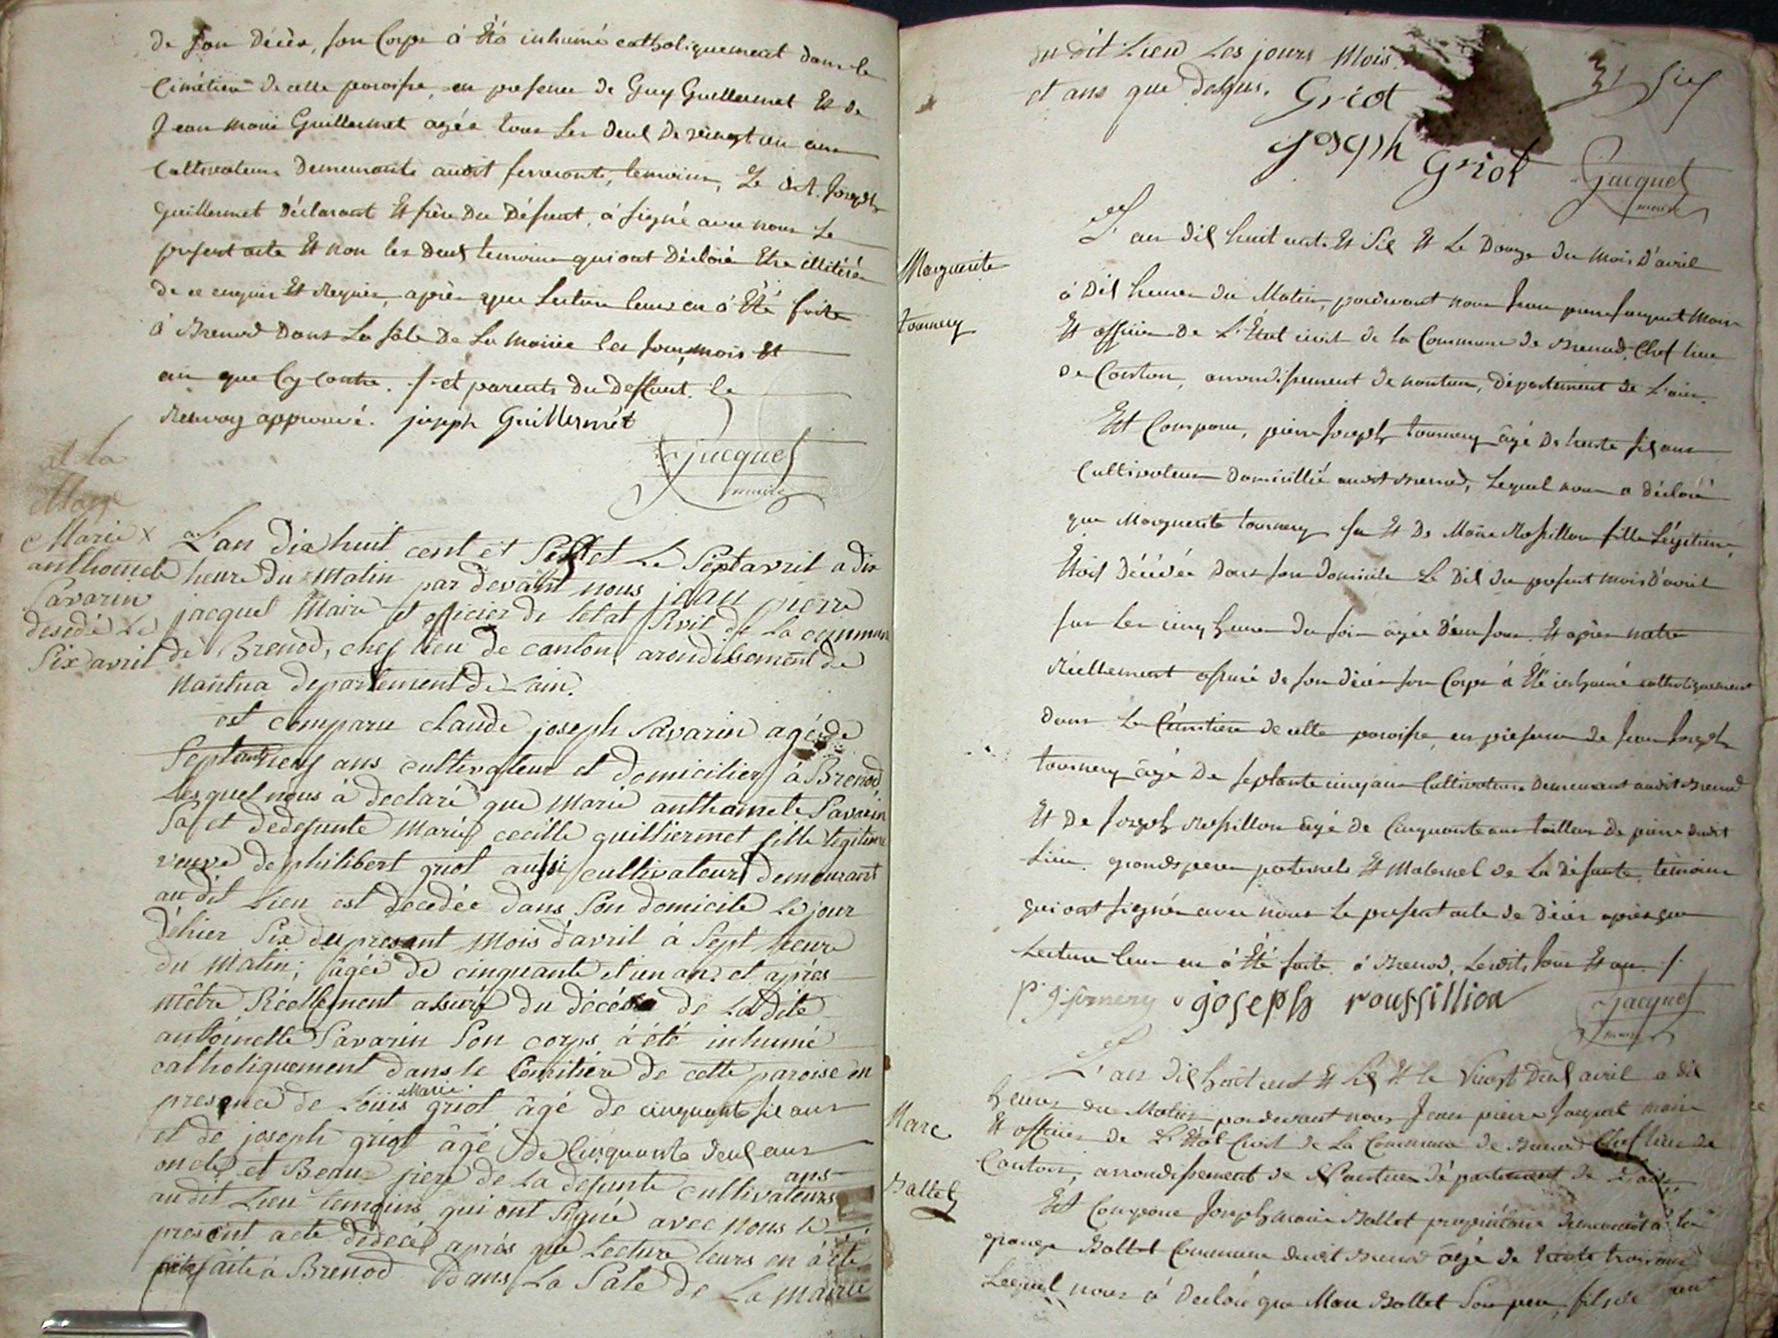 de son décès, son Corps à Été inhumé catholiquement dans le
Cimétiere de cette paroisse, en presence de Guy Guillermet Et de
Jean Marie Guillermet agés tous les deux de vingt un ans
Cultivateurs demeurants audit temoins, Le dit Joseph
Guillermet déclarant Et frère du Défunt, à signé avec nous Le
present acte Et non les deux temoins qui ont Déclaré Etre illitérés
de ce enquis Et Requis, après que Lecture leurs en à Été faite
à Brenod dans La Sale de La Mairie les jour, mois Et
an que Cy contre. /. et parents du deffunt. le
Renvoy approuvé. joseph Guillermet
Jacquet
maire
a la
Marie
anthoinete
Savarin
desedé Le
Six avril
L'an dix huit cent et Six et Le Sept avril a dix
heure du Matin par devant nous jean pierre
jacquet Maire et oficier de letat Sivil de La commune
de Brenod, chef lieu de canton, arondissement de
nantua departement de Lain.
est comparu claude joseph Savarin agé de
Septante ans cultivateur et domicilier à Brenod
Lesquel nous à declaré que Marie anthoinete Savarin
Sa et dedefunte Marie cecille guilliermet fille legitime
veuve de philibert griot aussi cultivateur demeurant
au dit Lieu est decedée dans Son domicile Le jour
d'hier Six du present Mois d'avril à Sept heure
du Matin; âgée de cinquante et un an. et aprés
mêtre Réellement assuré du décés de Ladite
antoinette Savarin Son corps à été inhumé
catholiquement dans le Cemitiére de cette paroise en
presence de Loüis Marie griot âgé de cinquante six ans
et de joseph griot âgé de Cinquante deux ans
oncle et Beau frere de La defunte cultivateurs
au dit Lieu temoins qui ont Signé avec nous le
present acte dedecés aprés que Lecture leurs en à été
faite à Brenod dans La Sale de La Mairie
du dit Lieu Les jours Mois
et ans que dessus. Griot
Joseph Griot
Jacquet
maire
Marguerite
Tournery
L'an dix huit cent Et Six Et Le Douze du mois d'avril
à Dix heures du Matin, pardevant nous Jean pierre Jacquet Maire
Et officier de L'État civil de la Commune de Brenod, Chef lieu
de Canton, arrondissement de nantua, département de L'ain.
Est Comparu, pierre Joseph tournery âgé de trente six ans
Cultivateur domicilié audit Brenod, Lequel nous a déclaré
que Marguerite tournery Sa Et de Marie Rossillon fille Légitime,
Étoit décédée dans son domicile Le Dix du present mois d'avril
sur les cinq heures du soir âgée D'un jour. Et après metre
réellement assuré de son décès son Corps à Été inhumé catholiquement
dans Le Cimétiere de cette paroisse, en presence de Jean Joseph
tournery âgé De septante cinq ans Cultivateur demeurant audit Brenod
Et De Joseph Rossillon âgé de Cinquante ans tailleur de pierre dudit
Lieu. grands peres paternels Et Maternel de La défunte, témoins
qui ont signés avec nous Le present acte de Décès après que
Lecture leur en à Été faite. à Brenod, Lesdits jour Et an. /.
joseph roussillion
Jacquet
maire
Marc
Ballet
L'an dix huit cent Et Six Et le Vingt Deux avril a dix
heures du Matin pardevant nous Jean pierre Jacquet maire
Et officier de L'État Civil de La Commune de Brenod Chef lieu de
Canton, arrondissement de Nantua département de L'ain.
Est Comparu Joseph marie Ballet propriétaire demeurant à la
grange Ballet Commune dudit Brenod âgé de trente trois ans
Lequel nous à Declaré que Marc Ballet Son pere, fils de